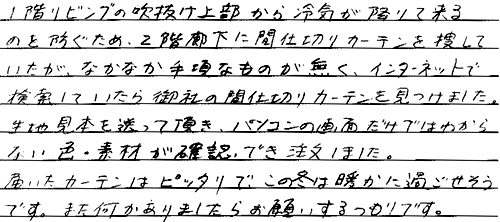 1階リビングの吹抜け上部から冷気が降りて来る
のを防ぐため、2階廊下に間仕切りカーテンを捜して
いたが、なかなか手頃なものが無く、インターネットで
検索していたら御社の間仕切りカーテンを見つけました。
生地見本を送って頂き、パソコンの画面だけではわから
ない色・素材が確認でき注文しました。
届いたカーテンはピッタリで、この冬は暖かに過ごせそう
です。また何かありましたらお願いするつもりです。